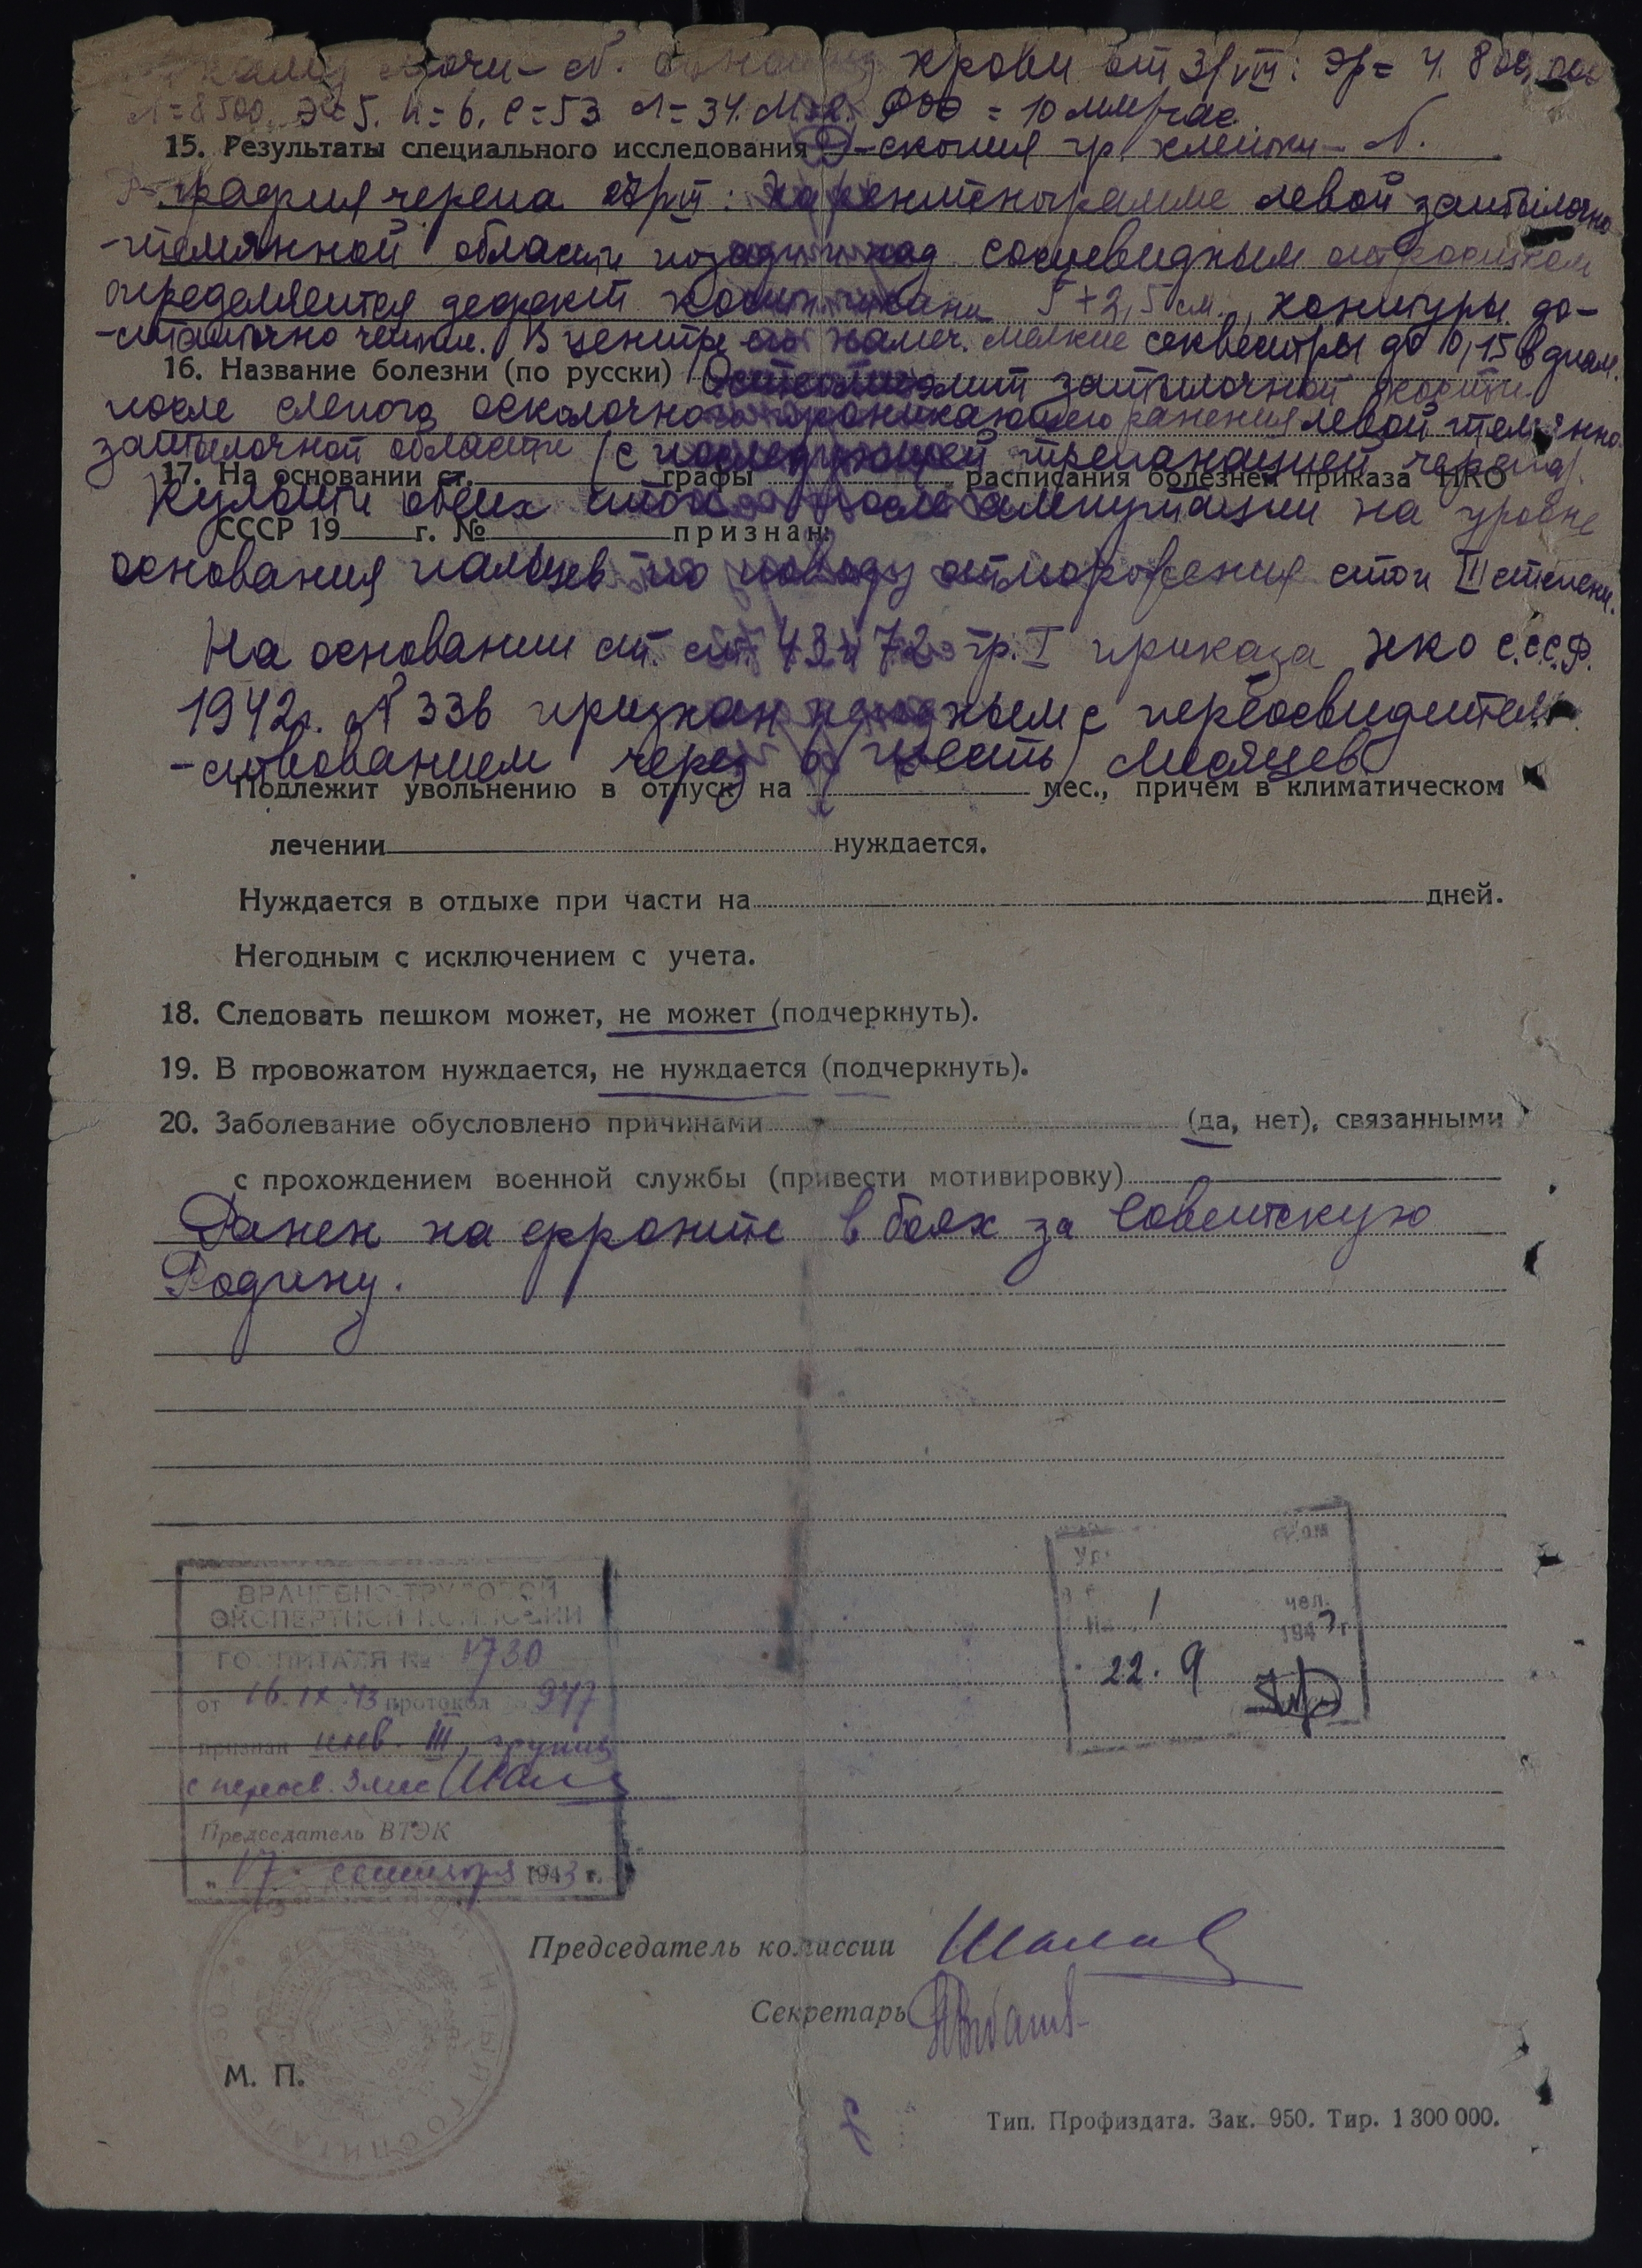 мочи - N. крови от 31/VIII: Эр = 4.800.000
Л = 8500, Э = 5. П = 6. С = 53 Л = 34. М = 2. РОЭ = 10 мм/час
15. Результаты специального исследования R-скопия гр. клетки - N.
R-графия черепа : На рентгенограмме левой затылочно
-теменной области позади и над сосцевидным отростком
определяется дефект кости 5+2,5 см., контуры до-
-статочно четкие. В центре его намеч. мелкие секвестры до 10,15 в диам.
16. Название болезни (по русски) Остеомиэлит затылочной кости
после слепого осколочного проникающего ранения левой теменно
затылочной области (с последующей трепанацией черепа).
17. На основании ст. графы расписания болезней приказа НКО
Культи обеих стоп после ампутации на уровне
СССР 19 г. № признан:
основания пальцев по поводу отморожения стоп III степени.
На основании ст. ст. 43 и 72 гр. I приказа НКО С.С.С.Р.
1942г. № 336 признан негодным с переосвидетель
-ствованием через 6 (шесть) месяцев
Подлежит увольнению в отпуск на мес., причем в климатическом
лечении нуждается.
Нуждается в отдыхе при части на дней.
Негодным с исключением с учета.
18. Следовать пешком может, не может (подчеркнуть).
19. В провожатом нуждается, не нуждается (подчеркнуть).
20. Заболевание обусловлено причинами (да, нет), связанными
с прохождением военной службы (привести мотивировку)
Ранен на фронте в боях за Советскую
Родину.
ВРАЧЕБНО-ТРУДОВОЙ
ЭКСПЕРТНОЙ КОМИССИИ
ГОСПИТАЛЯ № 1730
от 16.IX.43 протокол 947
признан инв. III группы
с переосв. 3 мес
Председатель ВТЭК
„17 сентября 1943 г.
1 чел.
194 г
22. 9
Председатель комиссии
Секретарь
М. П.
Тип. Профиздата. Зак. 950. Тир. 1 300 000.